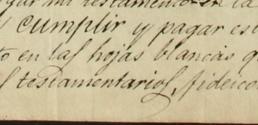 mi testamento en la
cumplir y pagar es
en las hojas blancas q
testamentarios, fideico